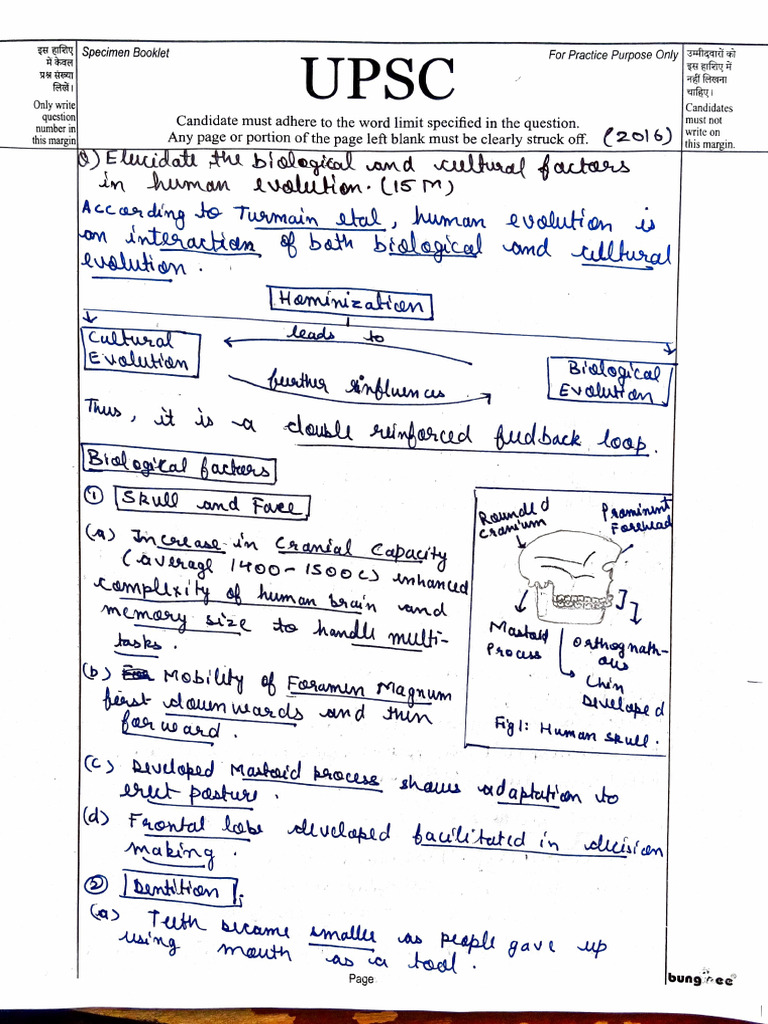 इस हाशिए
में केवल
प्रश्न संख्या
लिखें।
Only write
question
number in
this margin
Specimen Booklet
For Practice Purpose Only
UPSC
Candidate must adhere to the word limit specified in the question.
Any page or portion of the page left blank must be clearly struck off.
(2016)
उम्मीदवारों को
इस हाशिए में
नहीं लिखना
चाहिए।
Candidates
must not
write on
this margin.
Q) Elucidate the biological and cultural factors
in human evolution. (15 M)
According to Turmain etal, human evolution is
an interaction of both biological and cultural
evolution.
Hominization
Cultural
Evolution
leads to
further influences
Biological
Evolution
Thus, it is a double reinforced feedback loop.
Biological factors
① Skull and Face
(a) Increase in Cranial Capacity
(average 1400-1500cc) enhanced
complexity of human brain and
memory size to handle multi-
tasks.
(b) Mobility of Foramen Magnum
first downwards and then
forward.
Rounded
cranium
Prominent
Forehead
Mastoid
Process
Orthognath-
ous
Chin
Developed
Fig 1: Human Skull.
(c) Developed Mastoid process shows adaptation to
erect posture.
(d) Frontal lobe developed facilitated in decision
making.
② Dentition
(a) Teeth became smaller as people gave up
using mouth as a tool.
Page
bungree